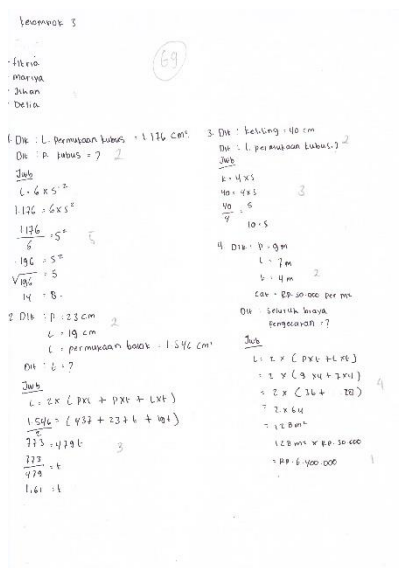 Kelompok 3
69
· Fitria
· Mariya
· Jihan
· Delia
1. Dik : L. permukaan kubus = 1.176 cm²
Dit : P. kubus = ?
2
Jwb
L = 6 x s²
1.176 = 6 x s²
1176/6 = s²
5
196 = s²
√196 = s
14 = s
2. Dik : P = 23 cm
2
L = 19 cm
L = permukaan balok = 1.546 cm²
Dit : t = ?
Jwb
L = 2 x ( pxt + pxt + Lxt )
1.546/2 = ( 437 + 23 + t + 19t )
773 = 479 t
3
773/479 = t
1,61 = t
3. Dik : keliling = 40 cm
Dit : L. permukaan kubus ?
2
Jwb
k = 4 x s
40 = 4 x s
3
40/4 = s
10 = s
4. Dik : P = 9 m
L = 7 m
t = 4 m
2
Cat = RP. 50.000 per m²
Dit : Seluruh biaya
Pengecatan = ?
Jwb
L = 2 x ( pxt + Lxt )
= 2 x ( 9 x 4 + 7 x 4 )
= 2 x ( 36 + 28 )
4
= 2 x 64
= 128 m²
128 m² x RP. 50.000
= RP. 6.400.000
1